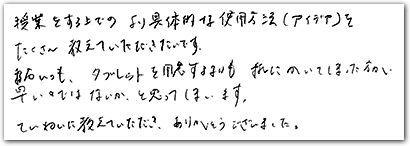 授業をする上での より具体的な使用方法(アイデア)を
たくさん 教えていただきたいです。
いつも、タブレットを用意するよりも 紙にかいてしまった方が
早いのではないか、と思ってしまいます。
ていねいに教えていただき、ありがとうございました。